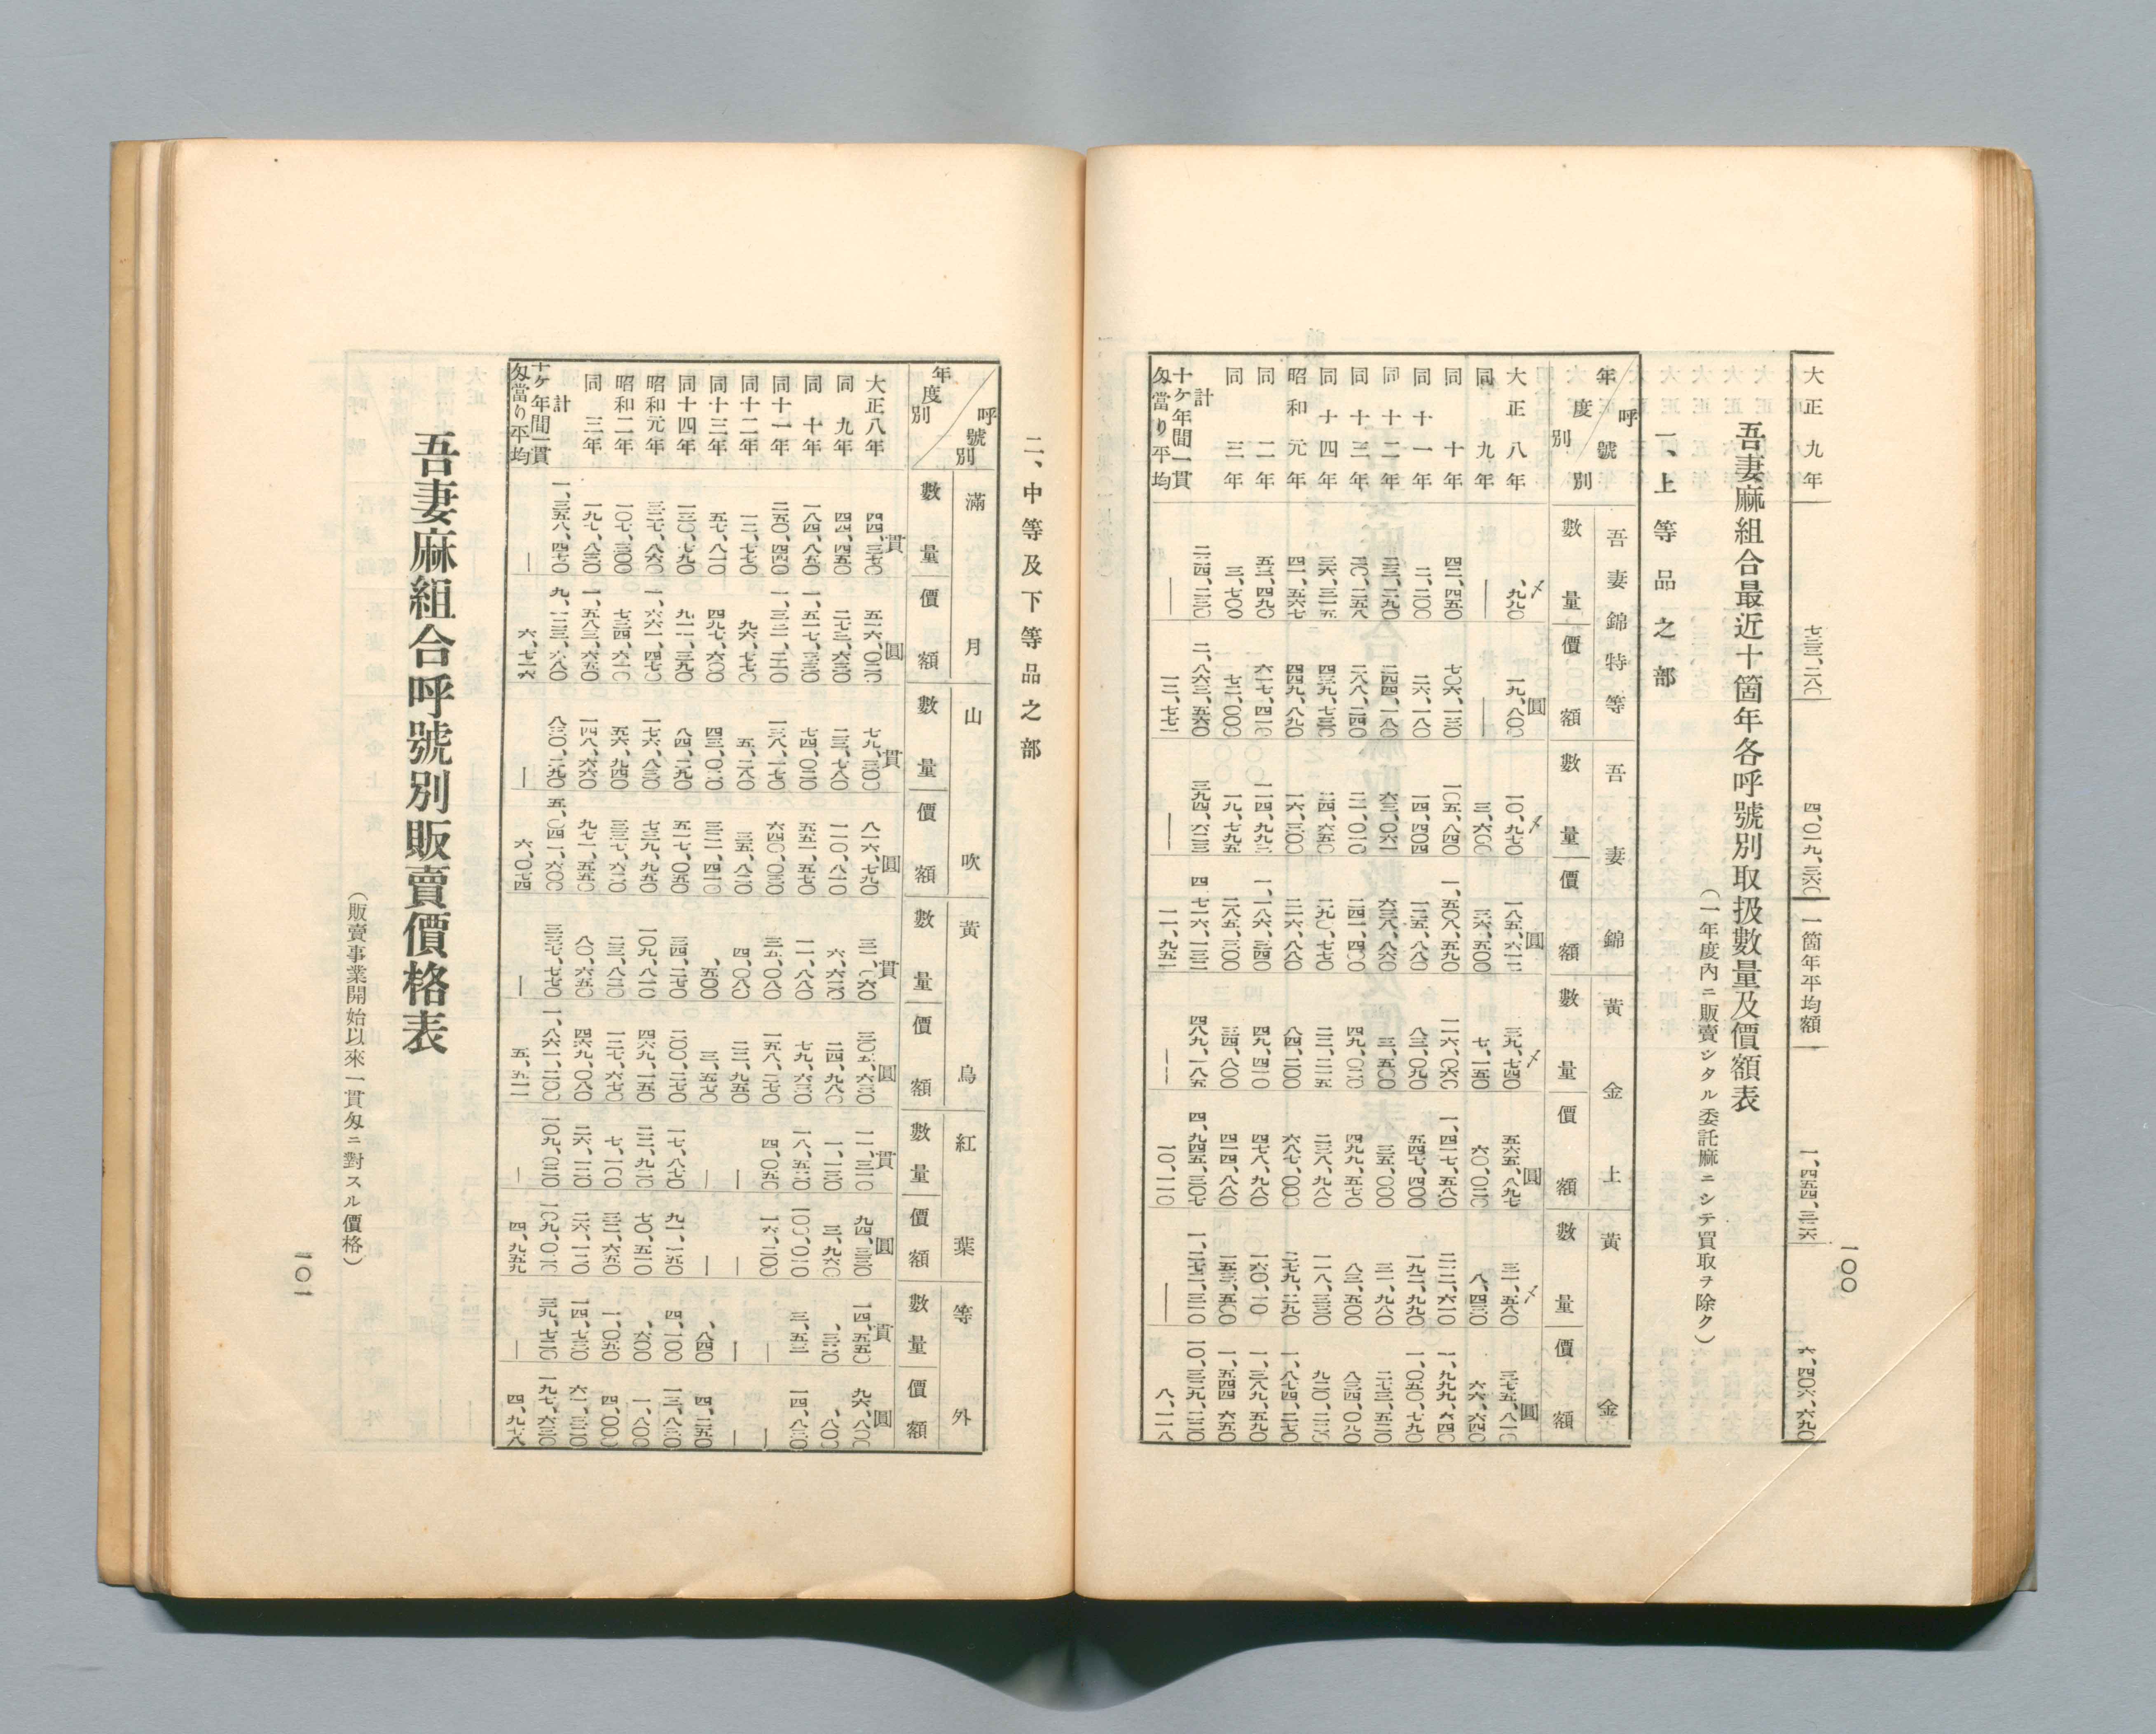 一〇〇
大正九年 七三三、二八〇 四、〇一九、三六〇 一箇年平均額 一、四五四、三二六 六、四〇六、六九〇
吾妻麻組合最近十箇年各呼號別取扱數量及價額表
（一年度內ニ販賣シタル委託麻ニシテ買取ヲ除ク）
一、上等品之部
呼號別 年度別
吾妻錦特等 吾妻錦 黃金上 黃金
數量 價額 數量 價額 數量 價額 數量 價額
大正八年 、九九〇 一九、八〇〇 一〇、九七〇 一八五、六一二 三九、七四〇 五六五、八九七 三一、五八〇 三七五、八一〇
同九年 ― ― 三、六〇〇 三六、五〇〇 七、一五〇 六〇、〇二〇 八、四三〇 六六、六四〇
同十年 四二、四五〇 七〇六、一三〇 一〇五、八四〇 一、五〇八、五九〇 一一六、〇六〇 一、四一七、五八〇 二一二、六一〇 一、九九九、六四〇
同十一年 二、二〇〇 二六、一八〇 一四、四〇四 一三五、八八〇 八三、〇九〇 五四七、四〇〇 一九二、九九〇 一、〇五〇、七九〇
同十二年 二三、二九〇 二四四、一八〇 六三、〇六一 六三八、八六〇 三、五〇〇 三五、〇〇〇 三一、九八〇 二七三、五二〇
同十三年 二〇、二五八 二八八、二四〇 二一、〇一〇 二四一、四〇〇 四九、〇二〇 四九九、五七〇 八三、五〇〇 八三四、〇九〇
同十四年 三六、三一五 四三九、七三〇 二四、六五〇 二九〇、七七〇 二二、二一五 二三八、九八〇 一一八、三三〇 九二〇、二三〇
昭和元年 四一、五六七 四四九、八九〇 一六、三〇〇 二一六、八八〇 八四、二〇〇 六八七、〇〇〇 二七九、二九〇 一、八七四、二七〇
同二年 五三、四九〇 六一七、四一〇 一一四、九九三 一、一八六、三四〇 四九、四一〇 四七八、九八〇 一六〇、一一〇 一、三八九、五九〇
同三年 三、七〇〇 七二、〇〇〇 一九、七九五 二八五、三〇〇 三四、八〇〇 四一四、八八〇 一五三、五〇〇 一、五四四、六五〇
計 二二四、二三〇 二、八六三、五六〇 三九四、六二三 四、七一六、一三二 四八九、一八五 四、九四五、三〇七 一、二七二、三一〇 一〇、三二九、二二〇
十ヶ年間一貫匁當り平均 ― 一二、七七一 ― 一一、九五一 ― 一〇、一一〇 ― 八、一一八
二、中等及下等品之部
呼號別 年度別
滿月 山吹 黃鳥 紅葉 等外
數量 價額 數量 價額 數量 價額 數量 價額 數量 價額
貫 圓 貫 圓 貫 圓 貫 圓 貫 圓
大正八年 四四、三七〇 五一六、〇二〇 七九、三〇〇 八一六、七九〇 三一、〇六〇 三〇五、六三〇 一一、三一〇 九四、三三〇 一四、五五〇 九六、八〇〇
同九年 四四、四五〇 二七三、六三〇 二三、七八〇 一一〇、八一〇 六、六二〇 二四、九八〇 一、一三〇 三、九六〇 、三二〇 、八〇〇
同十年 一八四、八五〇 一、五一七、三三〇 七四、〇二〇 五五一、五七〇 一一、八八〇 七九、六三〇 一八、五二〇 一〇〇、〇一〇 三、五二一 一四、八三〇
同十一年 二五〇、四四〇 一、三二一、二一〇 一三八、一七〇 六四〇、〇三〇 三五、〇八〇 一五八、二七〇 四、〇五〇 一六、二〇〇 ― ―
同十二年 一二、七七〇 九六、七七〇 五、二八〇 三五、八二〇 四、〇八〇 二二、九五〇 ― ― ― ―
同十三年 五七、八一〇 四九七、六〇〇 四三、〇一〇 三二一、四一〇 、五〇〇 三、五七〇 ― ― 、八四〇 四、二五〇
同十四年 一三〇、七九〇 九一一、三九〇 八四、二九〇 五一七、〇五〇 三四、二七〇 二〇〇、二七〇 一七、八七〇 九一、一五〇 四、一〇〇 一三、八三〇
昭和元年 三二七、八六〇 一、六六一、四七〇 一七六、八三〇 七三九、九五〇 一〇九、八一〇 四六九、一五〇 二二、九二〇 七〇、五一〇 、六〇〇 一、八〇〇
昭和二年 一〇七、三〇〇 七三四、六一〇 五六、九四〇 三三七、六二〇 二三、八二〇 一二七、六七〇 七、一〇〇 三二、六五〇 一、〇五〇 四、〇〇〇
同三年 一九七、八三〇 一、五八三、六五〇 一四八、六六〇 九七一、五五〇 八〇、六五〇 四六九、〇八〇 二六、一二〇 二六、一二〇 一四、七三〇 六一、三二〇
計 一、三五八、四七〇 九、一二三、六八〇 八三〇、二九〇 五、〇四一、六〇〇 三三七、七七〇 一、八六一、二〇〇 一〇九、〇二〇 一〇九、〇二〇 三九、七二〇 一九七、六三〇
十ヶ年間一貫匁當り平均 ― 六、七一六 ― 六、〇七四 ― 五、五一一 ― 四、九五九 ― 四、九七八
吾妻麻組合呼號別販賣價格表
（販賣事業開始以來一貫匁ニ對スル價格）
一〇一